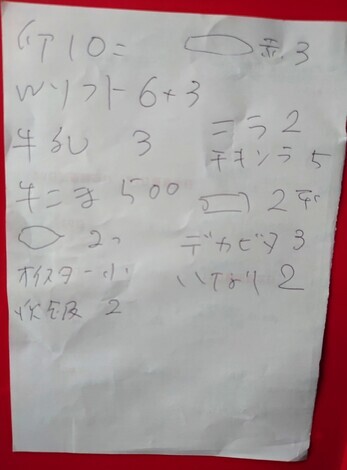 10=
3
Wソフト 6+3
牛乳 3
ニラ 2
チキンラ 5
牛こま 500
2
2コ
デカビタ 3
オイスター 小
いなり 2
2